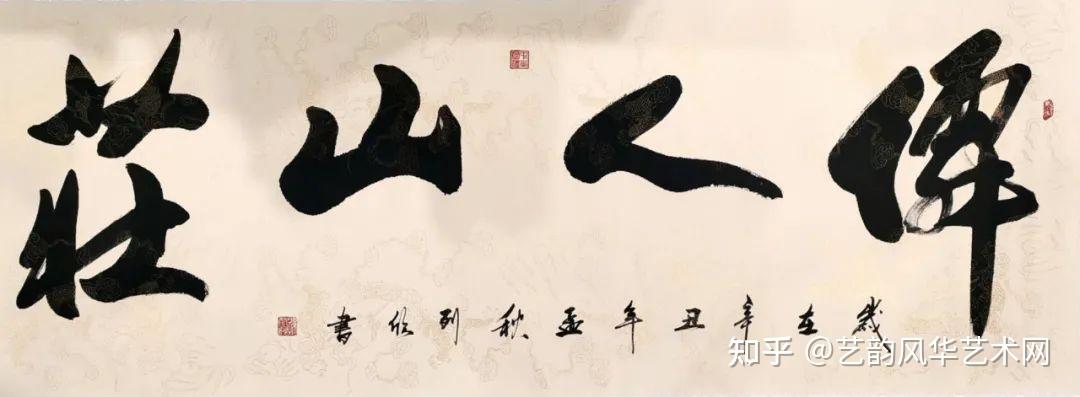 偉人山莊
歲在辛丑年孟秋列書
知乎 @艺韵风华艺术网